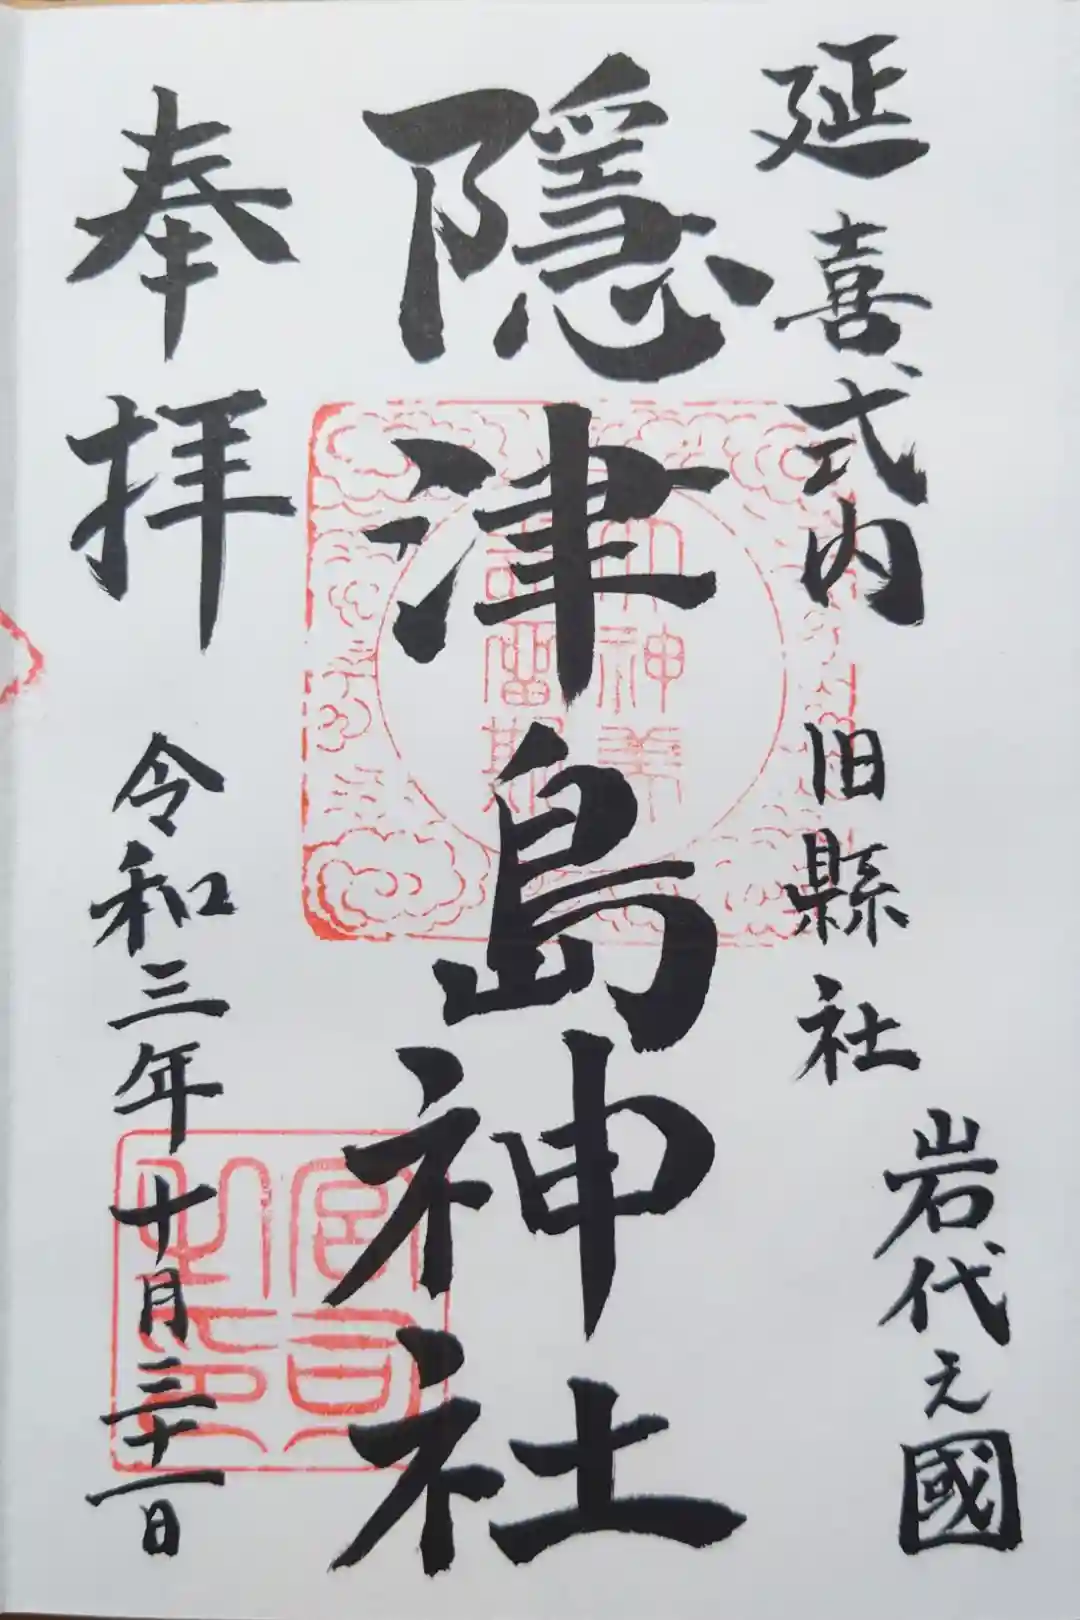 延喜式内
旧縣社
岩代之國
隱津島神社
奉拝
令和三年十月三十一日
宮司之印